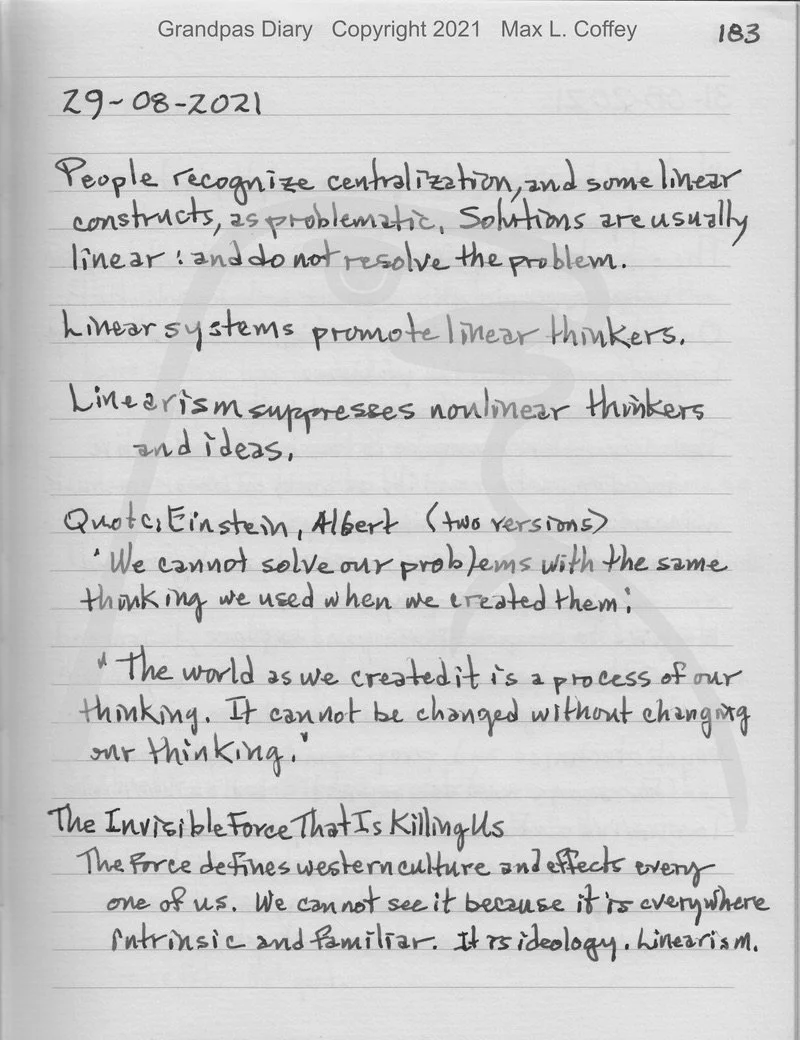 Grandpas Diary Copyright 2021 Max L. Coffey
183
29-08-2021
People recognize centralization, and some linear
constructs, as problematic. Solutions are usually
linear : and do not resolve the problem.
Linear systems promote linear thinkers.
Linearism suppresses nonlinear thinkers
and ideas.
Quote: Einstein, Albert (two versions)
"We cannot solve our problems with the same
thinking we used when we created them."
"The world as we created it is a process of our
thinking. It cannot be changed without changing
our thinking."
The Invisible Force That Is Killing Us
The force defines western culture and effects every
one of us. We cannot see it because it is everywhere
intrinsic and familiar. It is ideology. Linearism.